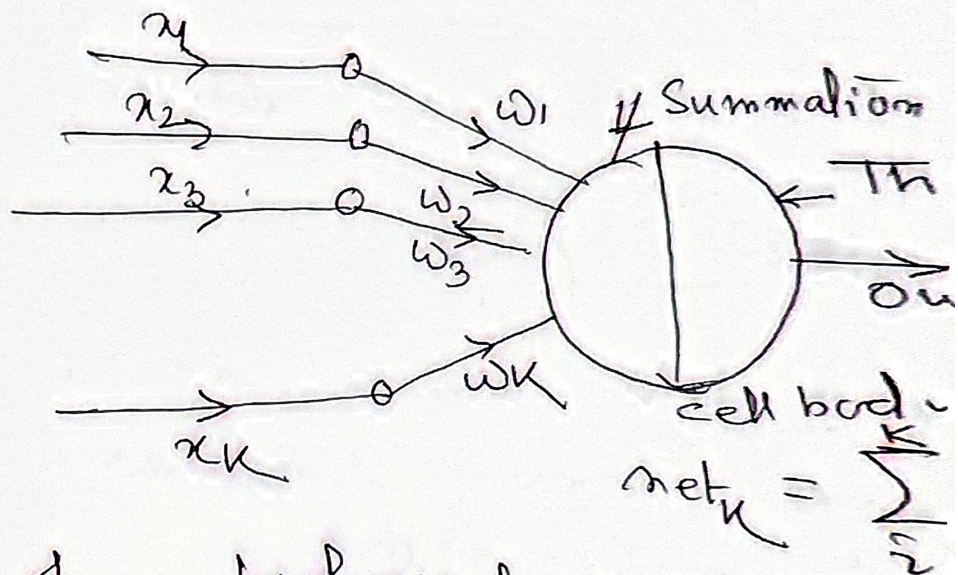 x1
x2
x3
xK
ω1
ω2
ω3
ωK
Summation
Th
Ou
cell bod
net_K = Σ K i